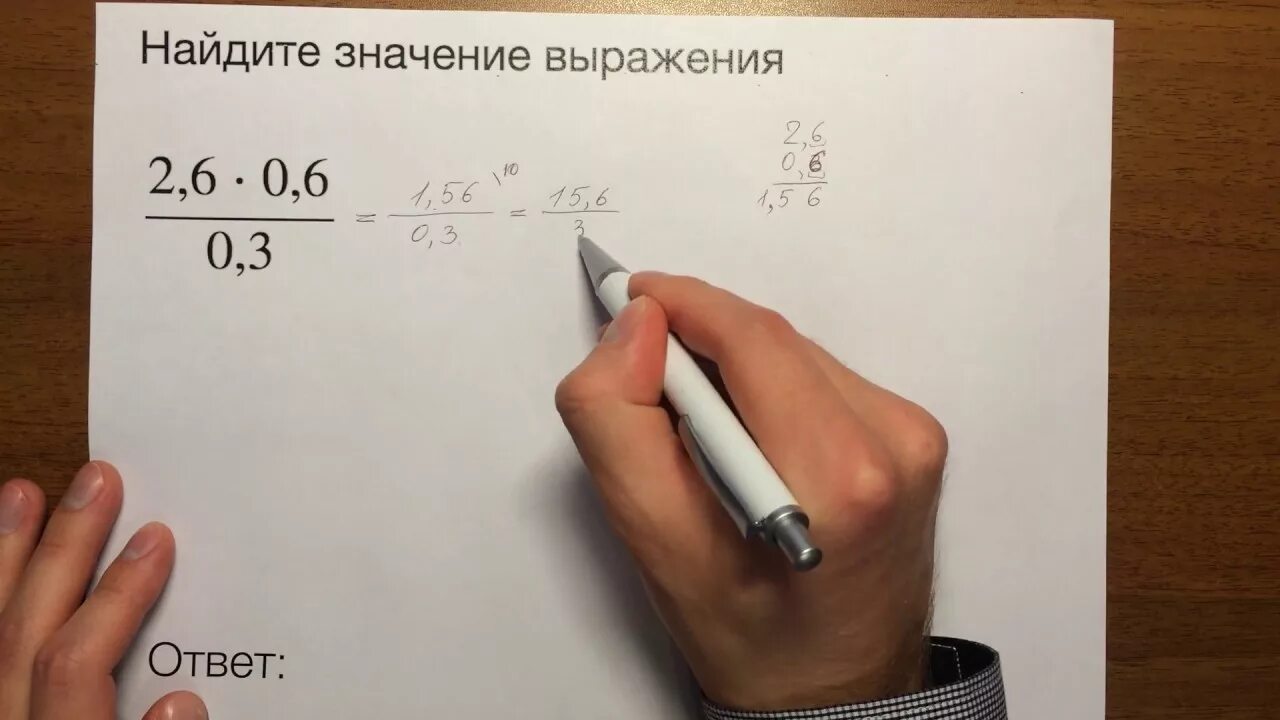 Найдите значение выражения
2,6 · 0,6
0,3
= 1,56 \10
0,3
= 15,6
3
2,6
0,6
1,56
Ответ: